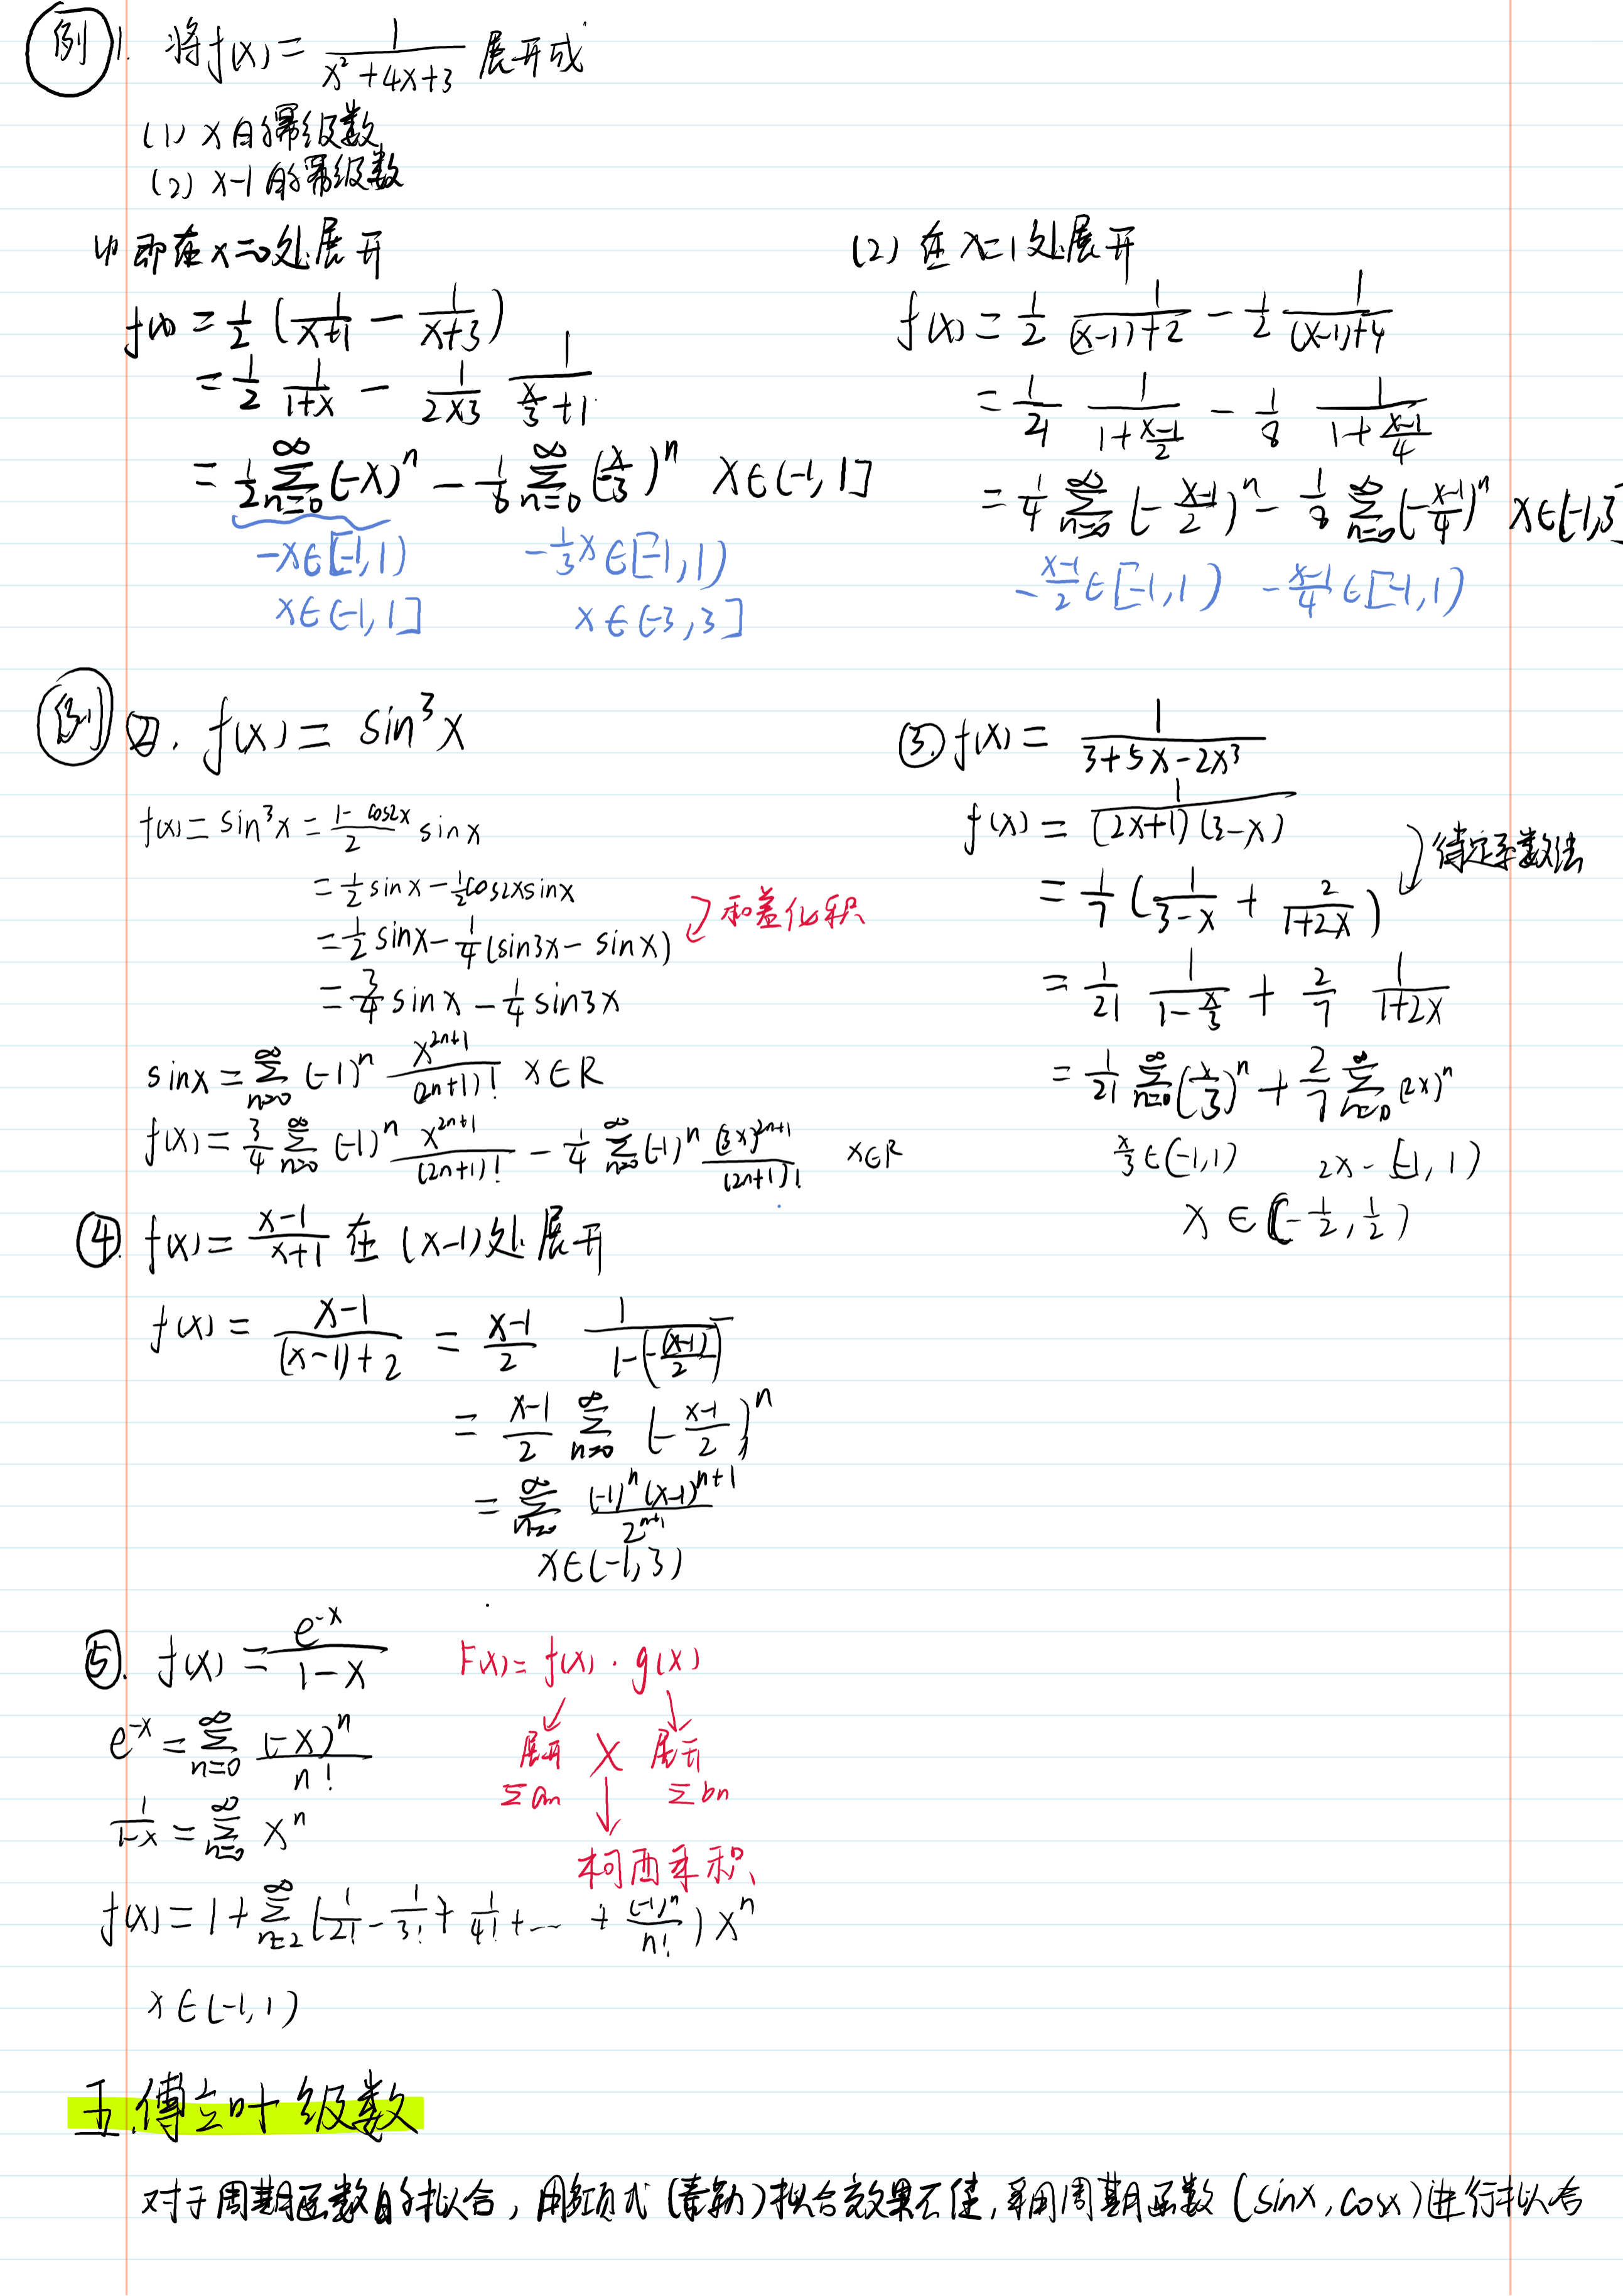 例 1. 将f(x) = 1/(x²+4x+3) 展开成
(1) x的幂级数
(2) x-1的幂级数
(1) 即在x=0处展开
f(x) = 1/2 (1/(x+1) - 1/(x+3))
= 1/2 1/(1+x) - 1/(2×3) 1/(x/3+1)
= 1/2 ∑_{n=0}^{∞} (-x)^n - 1/6 ∑_{n=0}^{∞} (-x/3)^n x∈(-1, 1]
-x∈[-1, 1) -1/3 x∈[-1, 1)
x∈(-1, 1] x∈(-3, 3]
(2) 在x=1处展开
f(x) = 1/2 1/((x-1)+2) - 1/2 1/((x-1)+4)
= 1/4 1/(1+(x-1)/2) - 1/8 1/(1+(x-1)/4)
= 1/4 ∑_{n=0}^{∞} (-(x-1)/2)^n - 1/8 ∑_{n=0}^{∞} (-(x-1)/4)^n x∈(-1,3]
-(x-1)/2 ∈[-1, 1) -(x-1)/4 ∈[-1, 1)
例 ②. f(x) = sin³x
f(x) = sin³x = (1-cos2x)/2 sinx
= 1/2 sinx - 1/2 cos2xsinx
= 1/2 sinx - 1/4 (sin3x - sinx) 和差化积
= 3/4 sinx - 1/4 sin3x
sinx = ∑_{n=0}^{∞} (-1)^n x^{2n+1}/(2n+1)! x∈R
f(x) = 3/4 ∑_{n=0}^{∞} (-1)^n x^{2n+1}/(2n+1)! - 1/4 ∑_{n=0}^{∞} (-1)^n (3x)^{2n+1}/(2n+1)! x∈R
③. f(x) = 1/(3+5x-2x³)
f(x) = 1/((2x+1)(3-x))
待定系数法
= 1/7 (1/(3-x) + 2/(1+2x))
= 1/21 1/(1-x/3) + 2/7 1/(1+2x)
= 1/21 ∑_{n=0}^{∞} (x/3)^n + 2/7 ∑_{n=0}^{∞} (2x)^n
x/3∈(-1,1) 2x-(-1, 1)
x∈(-1/2, 1/2)
④. f(x) = (x-1)/(x+1) 在 (x-1)处展开
f(x) = (x-1)/((x-1)+2) = (x-1)/2 1/(1-(-(x-1)/2))
= (x-1)/2 ∑_{n=0}^{∞} (-(x-1)/2)^n
= ∑_{n=0}^{∞} (-1)^n (x-1)^{n+1}/2^{n+1}
x∈(-1,3)
⑤. f(x) = e^{-x}/(1-x) F(x) = f(x) · g(x)
e^{-x} = ∑_{n=0}^{∞} (-x)^n/n! 展开 × 展开
∑an ∑bn
1/(1-x) = ∑_{n=0}^{∞} x^n
柯西乘积
f(x) = 1 + ∑_{n=2}^{∞} (1/2! - 1/3! + 1/4! + ⋯ + (-1)^n/n!) x^n
x∈(-1, 1)
五.傅立叶级数
对于周期函数的拟合, 用多项式(泰勒)拟合效果不佳, 采用周期函数 (sinx, cosx) 进行拟合